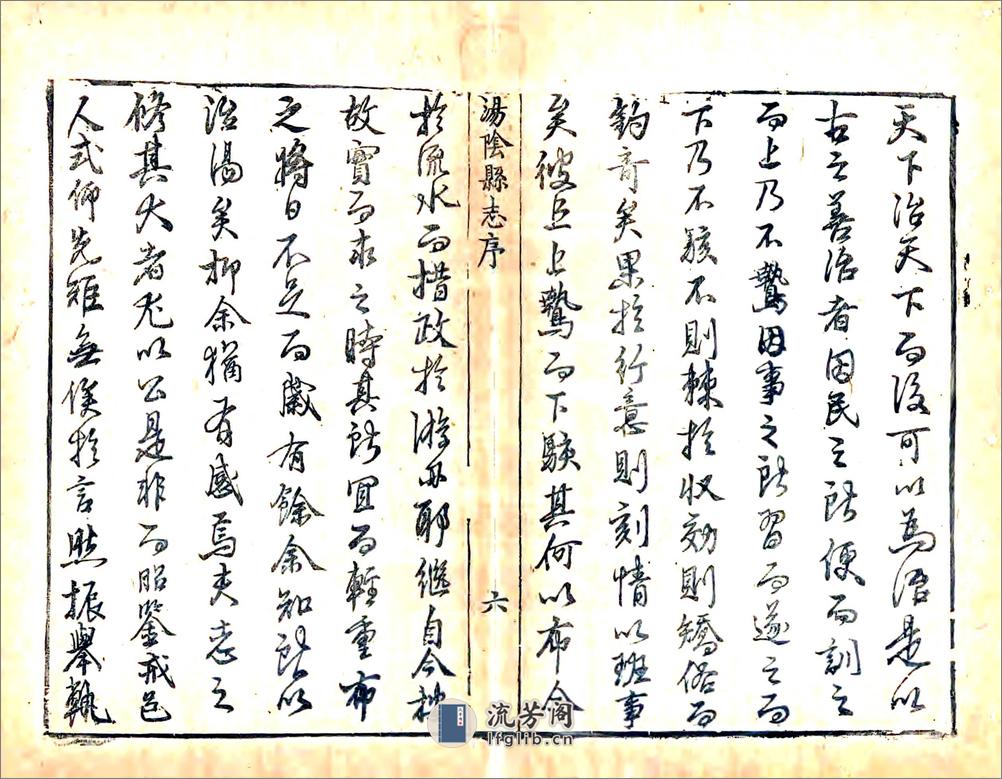 天下治天下而後可以為治是以
古之善治者因民之所便而訓之
而上乃不驁因事之所習而遂之而
下乃不駭不則棘於收効則矯俗而
釣奇矣果於行意則刻情以班事
矣彼且上驁而下駭其何以布令
湯陰縣志序
六
於流水而措政於游毋耶繼自今
故實而求之時其所宜而輊重布
之將日不足而歲有餘余知所以
治湯矣抑余猶有感焉夫志之
脩其大者尤以公是非而昭鑒戒邑
人式仰先雖無俟於言然振舉執
流芳阁
lfglib.cn